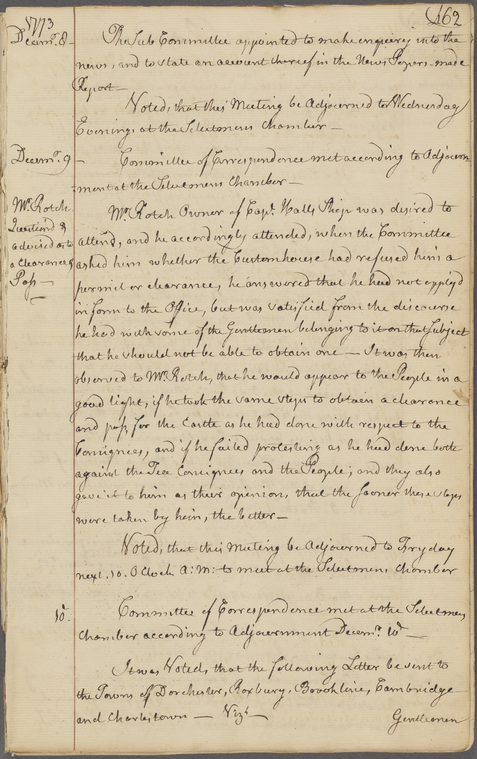 1773
462
Decemr. 8 — The Sub Committee appointed to make enquiry into the
news, and to state an account thereof in the News Papers made
Report —
Voted, that this Meeting be Adjourned to Wednesday
Evenings at the Selectmens Chamber —
Decemr. 9 — Committee of Correspondence met according to Adjourn
ment at the Selectmens Chamber —
Mr. Rotch
Questiond &
advised as to
a Clearance &
Pass —
Mr. Rotch Owner of Capt. Halls Ship was desired to
attend, and he accordingly attended, when the Committee
asked him whether the Customhouse had refused him a
permit or clearance, he answered that he had not applyd
in form to the Office, but was satisfied from the discourse
he had with some of the Gentlemen belonging to it on that Subject
that he should not be able to obtain one — It was then
observed to Mr. Rotch, that he would appear to the People in a
good light, if he took the same steps to obtain a clearance
and pass for the Castle as he had done with respect to the
Consignees, and if he failed protesting as he had done both
against the Tea Consignees and the People; and they also
gave it to him as their opinion, that the sooner these steps
were taken by him, the better —
Voted, that this Meeting be Adjourned to Fryday
next .10. O Clock A: M: to meet at the Selectmens Chamber
10. Committee of Correspondence met at the Selectmens
Chamber according to Adjournment Decemr. 10 —
It was Voted, that the following Letter be sent to
the Towns of Dorchester, Roxbury, Brookline, Cambridge
and Charlestown — Vizt. —
Gentlemen